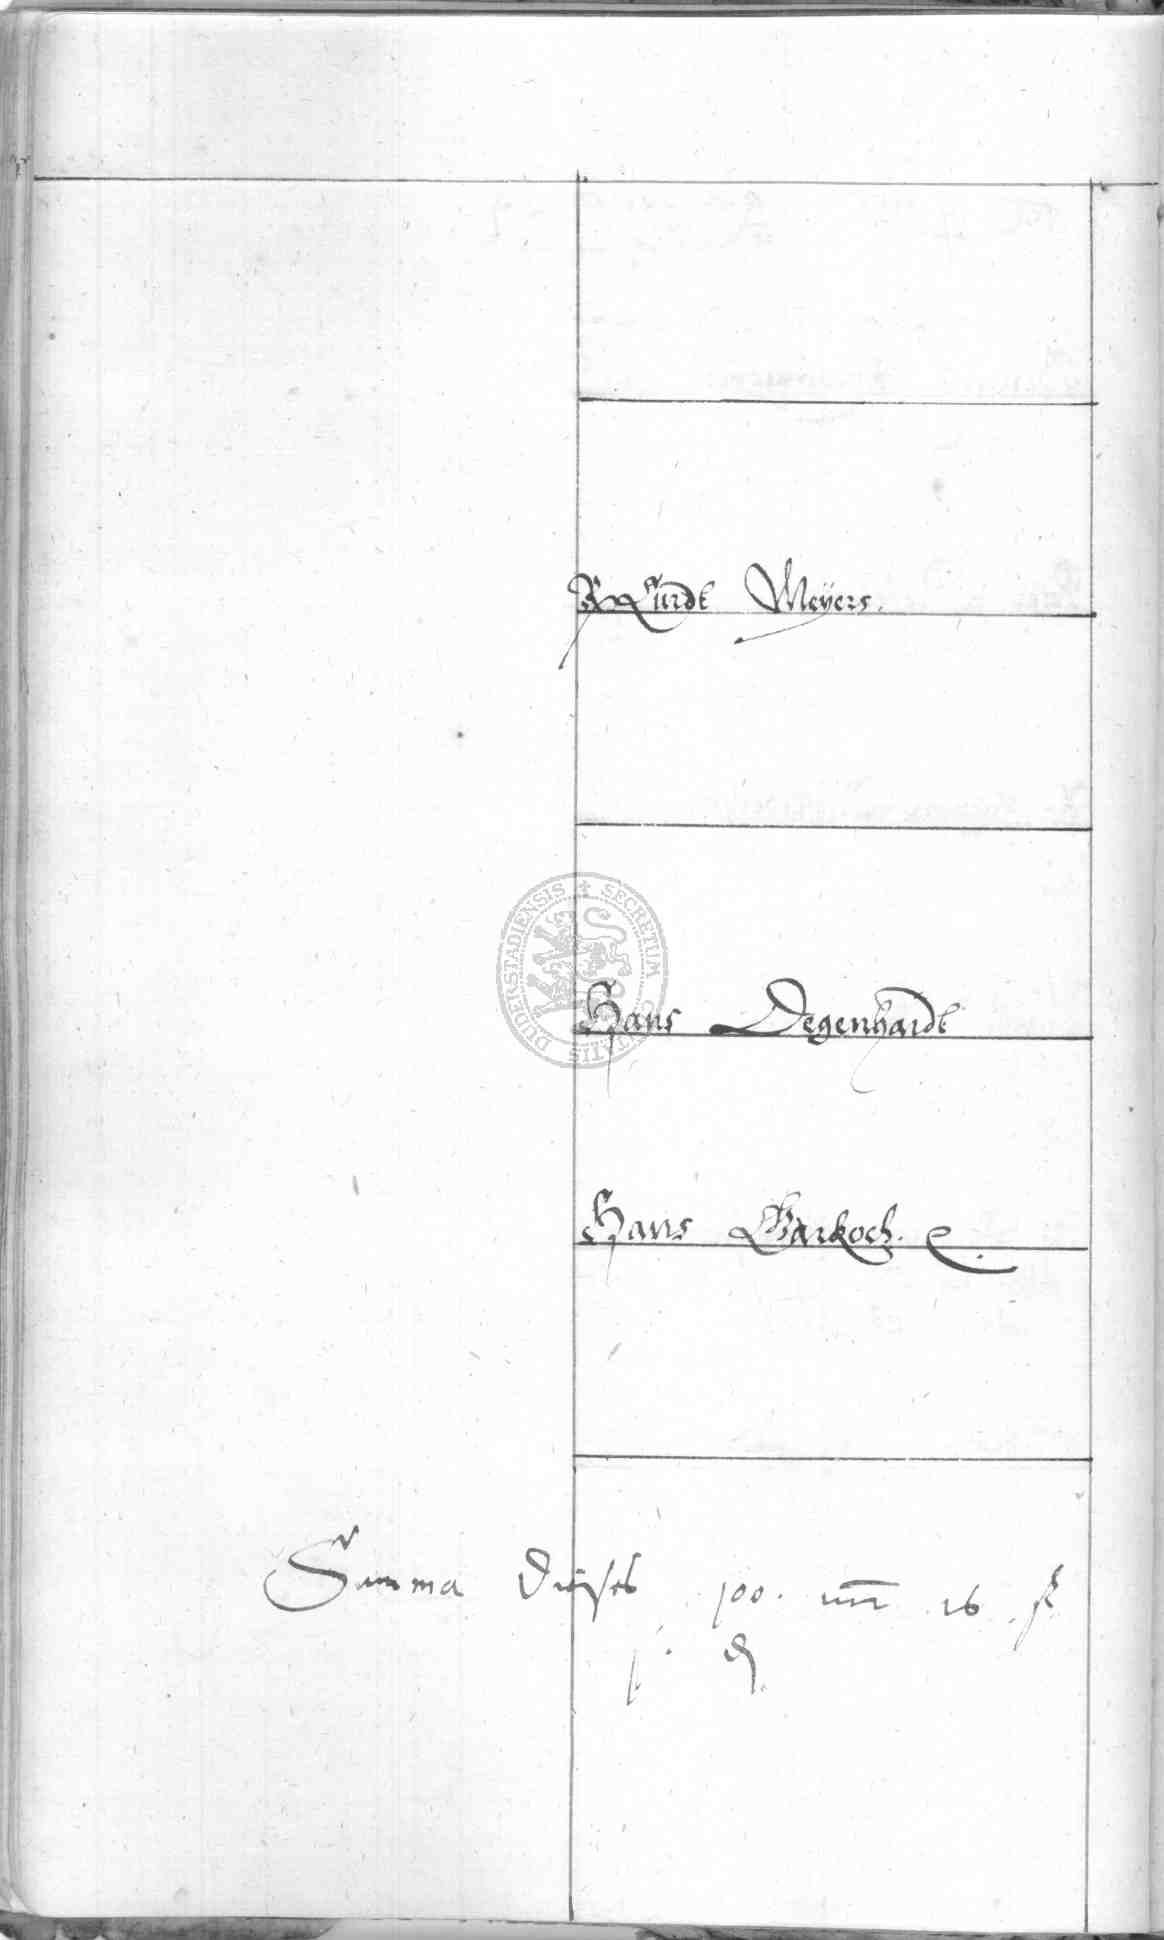 Curdt Meyers.
SECRETUM CIVITATIS DUDERSTADIENSIS
Hans Degenhardt
Hans Garkoch.
Summa dieses 100. 16 ß
1. ₰